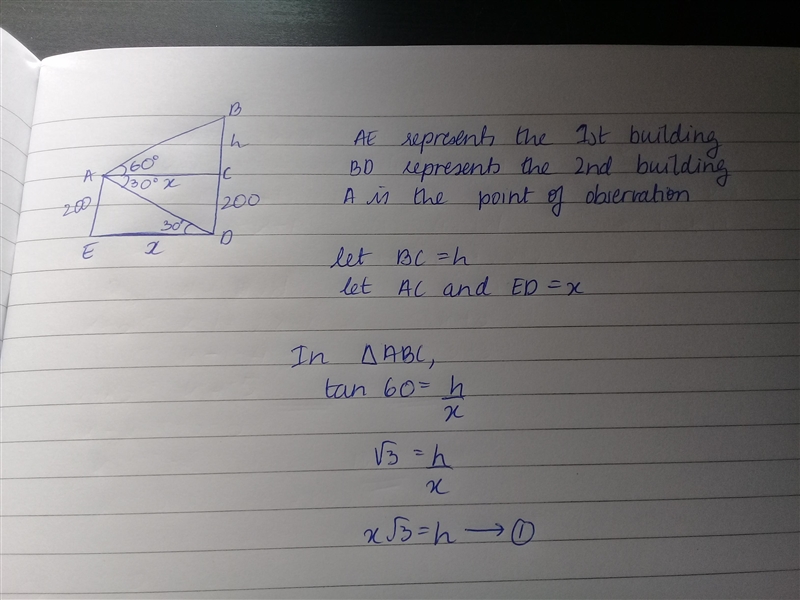 B
h
60°
A
30° x
C
200
200
30
E
x
D
AE represents the 1st building
BD represents the 2nd building
A is the point of observation
let BC = h
let AC and ED = x
In △ABC,
tan 60 = h/x
√3 = h/x
x√3 = h → ①